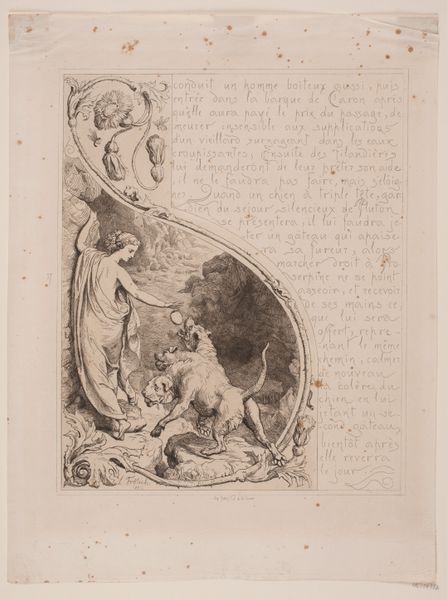 conduit un homme boiteux aussi, puis
entrée dans la barque de Caron après
qu'elle aura payé le prix du passage, de-
meurer insensible aux supplications
d'un vieillard surnageant dans les eaux
croupissantes, Ensuite des filandières
lui demanderont de leur prêter son aide
il ne le faudra pas faire, mais s'éloig-
ner Quand un chien à triple tête, gar-
dien du séjour silencieux de Pluton
se présentera, il lui faudra je-
ter un gâteau qui apaise-
ra sa fureur, alors
marcher droit à Pro-
serpine ne se point
asseoir, et recevoir
de ses mains ce
que lui sera
offert, repre-
nant le même
chemin, calmer
de nouveau
la colère du
chien en lui
jetant un se-
cond gâteau
bientôt après
elle reverra
le jour